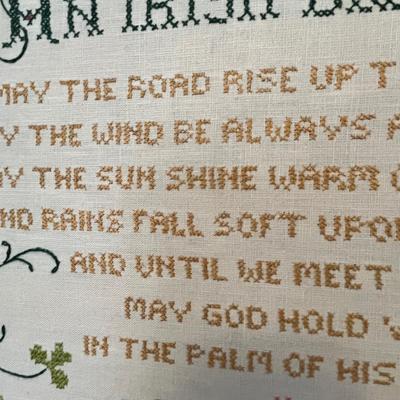 AN IRISH
MAY THE ROAD RISE UP T
Y THE WIND BE ALWAYS A
Y THE SUN SHINE WARM
ND RAINS FALL SOFT UPON
AND UNTIL WE MEET
MAY GOD HOLD
IN THE PALM OF HIS